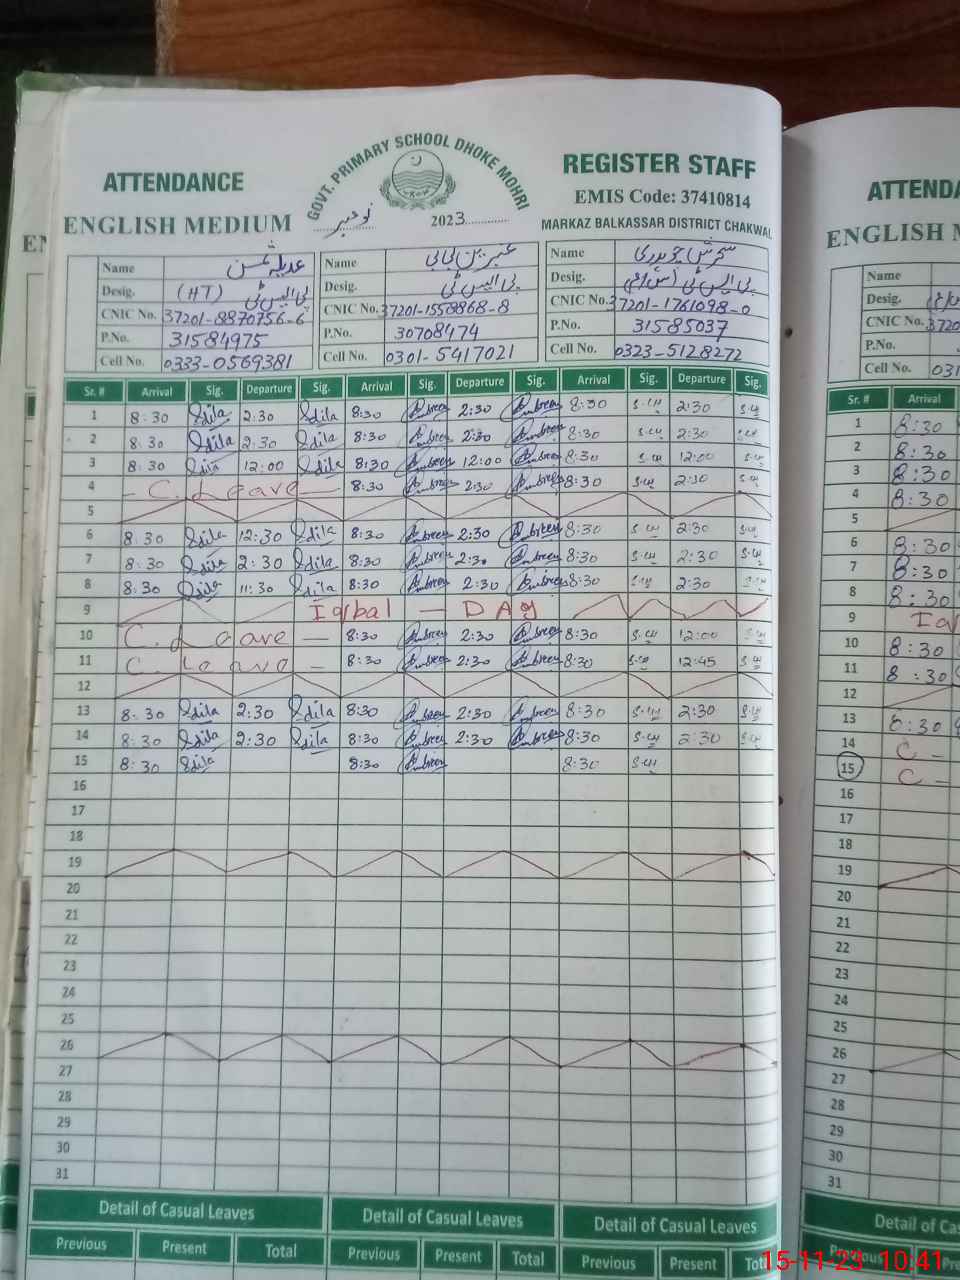 GOVT. PRIMARY SCHOOL DHOKE MOHRI
ATTENDANCE REGISTER STAFF
EMIS Code: 37410814
ENGLISH MEDIUM نومبر 2023 MARKAZ BALKASSAR DISTRICT CHAKWAL
Name عدیلہ شمس Name عنبرین بی بی Name سحرش چوہدری
Desig. (HT) پی ایس ٹی Desig. پی ایس ٹی Desig. پی ایس ٹی
CNIC No. 37201-8870756-6 CNIC No. 37201-1558868-8 CNIC No. 37201-1761098-0
P.No. 31584975 P.No. 30708474 P.No. 31585037
Cell No. 0333-0569381 Cell No. 0301-5417021 Cell No. 0323-5128272
Sr. # Arrival Sig. Departure Sig. Arrival Sig. Departure Sig. Arrival Sig. Departure Sig.
1 8:30 Adila 2:30 Adila 8:30 Ambreen 2:30 Ambreen 8:30 2:30
2 8:30 Adila 2:30 Adila 8:30 Ambreen 2:30 Ambreen 8:30 2:30
3 8:30 Adila 12:00 Adila 8:30 Ambreen 12:00 Ambreen 8:30 12:00
4 - C. Leave - 8:30 Ambreen 2:30 Ambreen 8:30 2:30
5
6 8:30 Adila 12:30 Adila 8:30 Ambreen 2:30 Ambreen 8:30 2:30
7 8:30 Adila 2:30 Adila 8:30 Ambreen 2:30 Ambreen 8:30 2:30
8 8:30 Adila 11:30 Adila 8:30 Ambreen 2:30 Ambreen 8:30 2:30
9 Iqbal - DAy
10 C. Leave - 8:30 Ambreen 2:30 Ambreen 8:30 12:00
11 C. Leave - 8:30 Ambreen 2:30 Ambreen 8:30 12:45
12
13 8:30 Adila 2:30 Adila 8:30 Ambreen 2:30 Ambreen 8:30 2:30
14 8:30 Adila 2:30 Adila 8:30 Ambreen 2:30 Ambreen 8:30 2:30
15 8:30 Adila 8:30 Ambreen 8:30
16
17
18
19
20
21
22
23
24
25
26
27
28
29
30
31
Detail of Casual Leaves Detail of Casual Leaves Detail of Casual Leaves
Previous Present Total Previous Present Total Previous Present Total
ATTENDA
ENGLISH M
Name
Desig.
CNIC No. 3720
P.No.
Cell No. 031
Sr. # Arrival
1 8:30
2 8:30
3 8:30
4 8:30
5
6 8:30
7 8:30
8 8:30
9
10 8:30
11 8:30
12
13 8:30
14 C -
15 C -
16
17
18
19
20
21
22
23
24
25
26
27
28
29
30
31
Detail of Cas
Previous
15-11-23 10:41